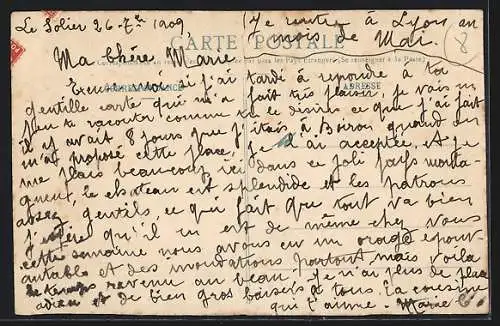 Le Solier 26-7re 1909
Je rentre à Lyon au
mois de Mai.
8
CARTE POSTALE
Ma chère Marie
(Se renseigner à la Poste)
CORRESPONDANCE
ADRESSE
j'ai tardé à répondre à ta
gentille carte qui m'a fait très plaisir. Je vais un
peu te raconter comme tu le désires ce que j'ai fait
il y avait 8 jours que j'étais à Biron quand on
m'a proposé cette place, je l'ai acceptée. et je
me plais beaucoup ici dans ce joli pays monta-
gneux, le chateau est splendide et les patrons
assez gentils, ce qui fait que tout va bien
j'espère qu'il en est de même chez vous
cette semaine nous avons eu un orage épouv-
antable et des inondations partout, mais voila
le temps revenu au beau. Je n'ai plus de place
adieu et de bien gros baisers à tous. Ta cousine
qui t'aime - Marie